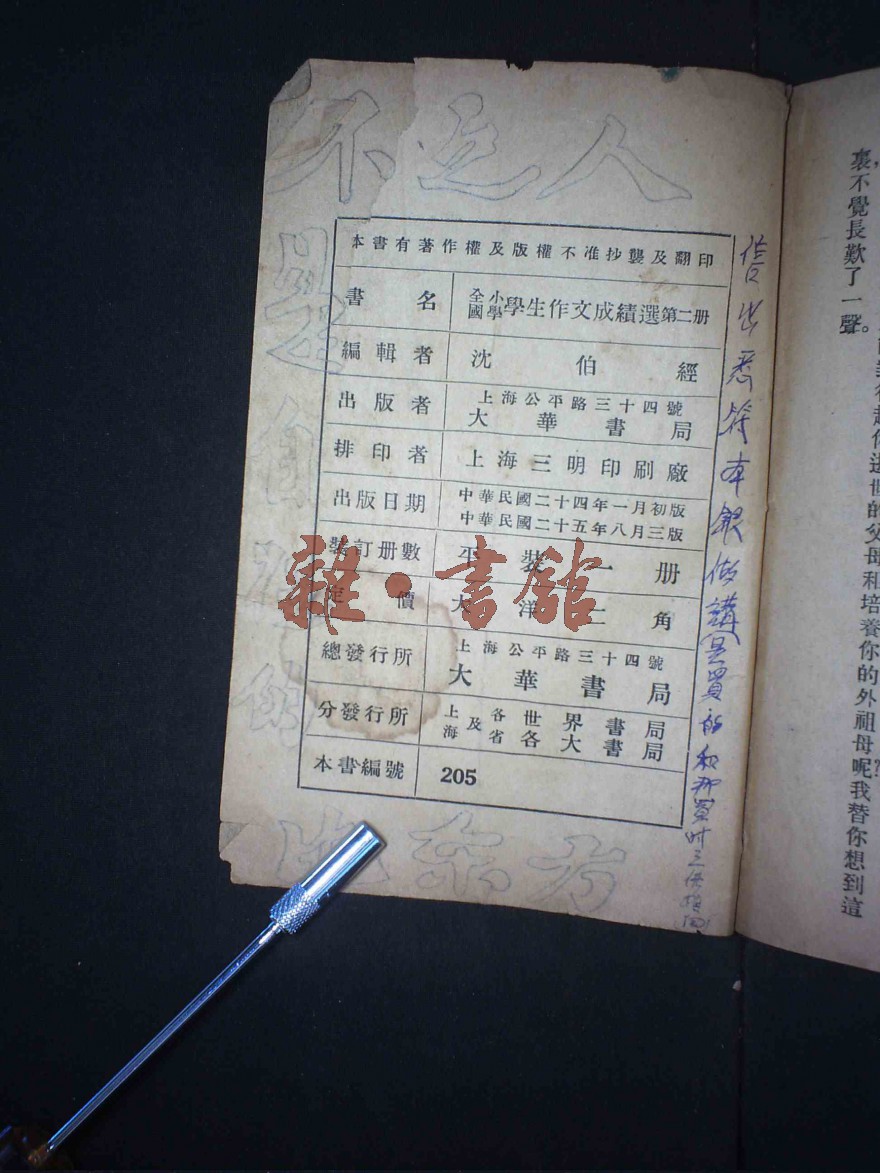 本書有著作權及版權不准抄襲及翻印
書名 全國小學學生作文成績選第二册
編輯者 沈伯經
出版者 上海公平路三十四號
大華書局
排印者 上海三明印刷廠
出版日期 中華民國二十四年一月初版
中華民國二十五年八月三版
裝訂册數 平裝一册
定價 大洋二角
總發行所 上海公平路三十四號
大華書局
分發行所 上海及各省各世界書局
各大書局
本書編號 205
雜·書館
裏不覺長歎了一聲。
你逝世的父母和培養你的外祖母呢?我替你想到這